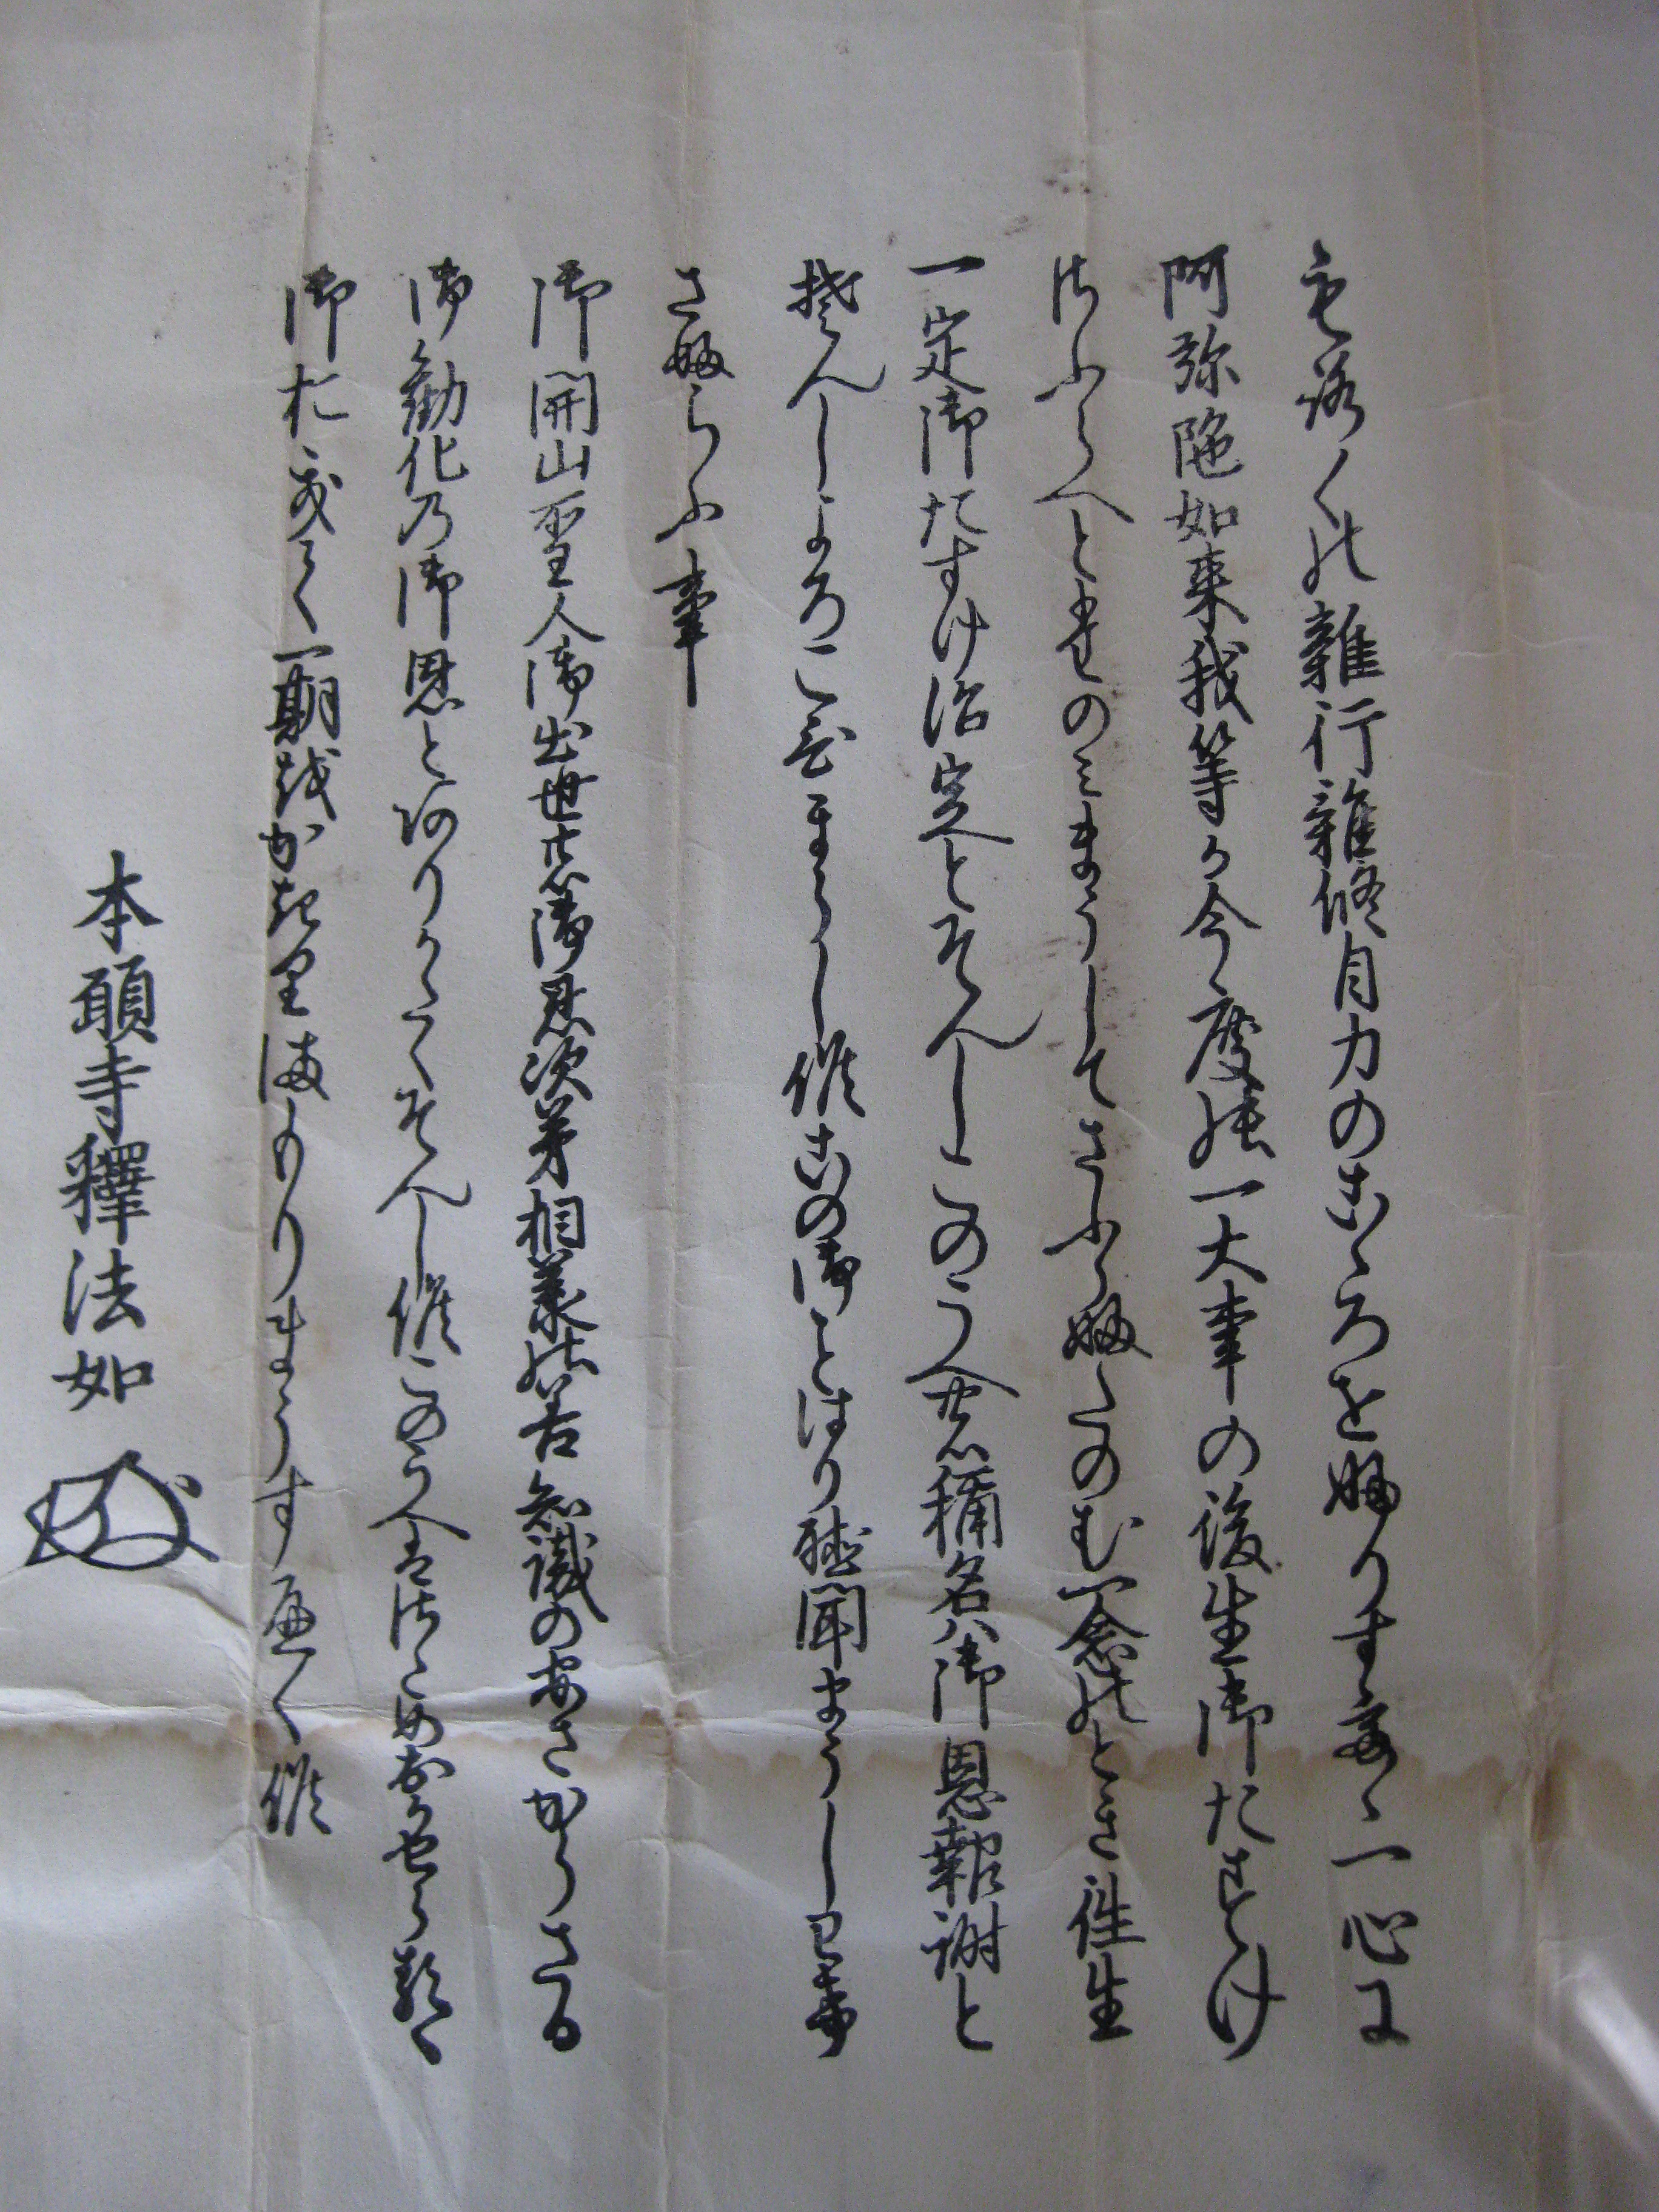 もろ〱の雜行雜修自力のこゝろをふりすてゝ一心に
阿弥陀如来我等か今度の一大事の後生御たすけ
さふらへとたのみまうしてさふらふたのむ一念のとき往生
一定御たすけ治定とそんしこのうへの稱名ハ御恩報謝と
そんしよろこひまうし候この御ことはり聴聞まうしわけ
さふらふ事
御開山聖人御出世の御恩次第相承の善知識のあさからさる
御勧化乃御恩とありかたくそんし候このうへはさためおかせらるゝ
御おきて一期をかきりまもりまうすへく候
本願寺釋法如